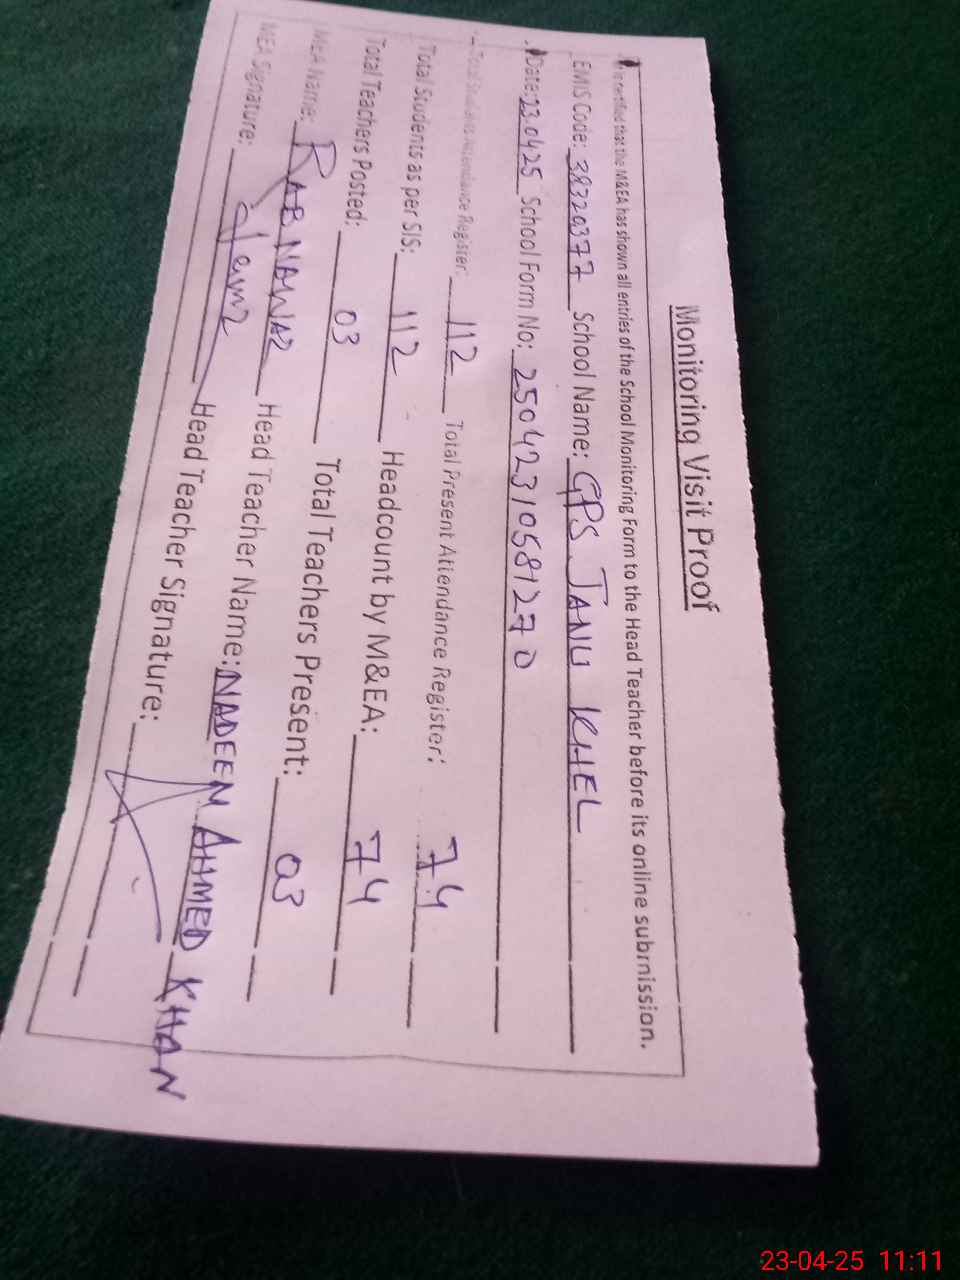 Monitoring Visit Proof
certified that the M&EA has shown all entries of the School Monitoring Form to the Head Teacher before its online submission.
EMIS Code: 38320377 School Name: GPS JANU KHEL
Date: 23.0425 School Form No: 25042310581270
Total Students Attendance Register: 112 Total Present Attendance Register: 74
Total Students as per SIS: 112 Headcount by M&EA: 74
Total Teachers Posted: 03 Total Teachers Present: 03
MEA Name: RAB NAWAZ Head Teacher Name: NADEEM AHMED KHAN
MEA Signature: Head Teacher Signature:
23-04-25 11:11